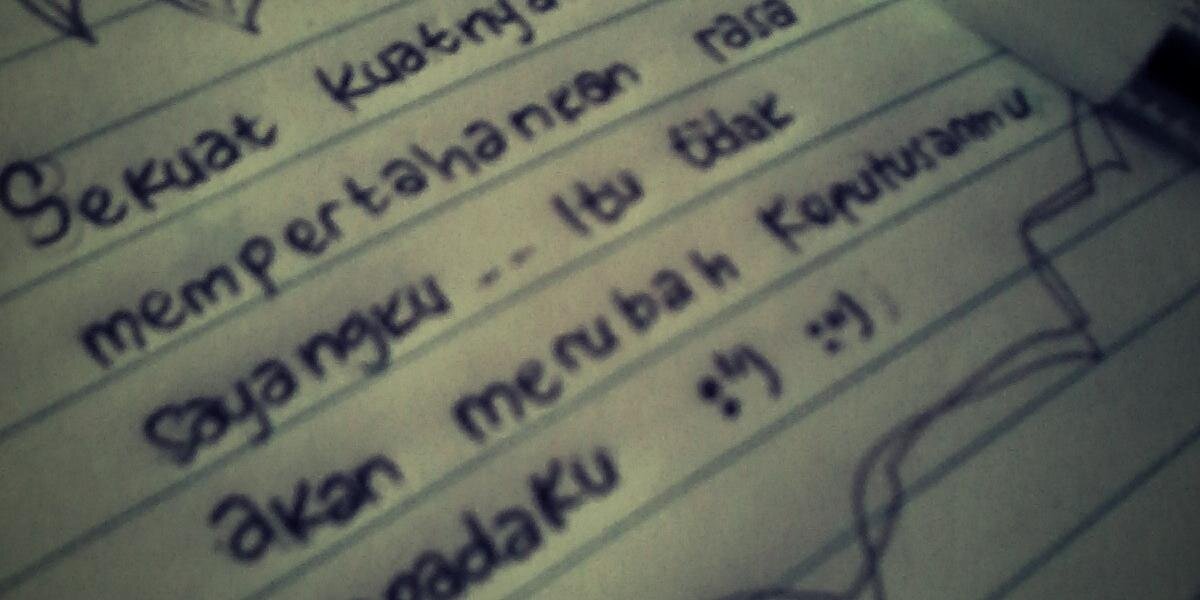 Sekuat kuatnya
mempertahankan rasa
sayangku .. Itu tidak
akan merubah Keputusanmu
padaku :') :')